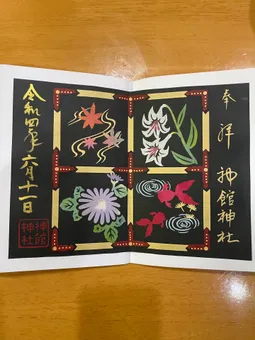 奉拝
神館神社
令和四年六月十一日
神館
神社